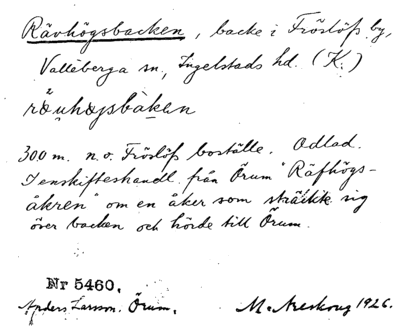 Rävhögsbacken, backe i Fröslöfs by,
Vallöberga sn, Ingelstads hd. (K.)
300 m. n.o. Fröslöfs boställe. Odlad.
I enskifteshandl. från Örum "Räfhögs-
åkren" om en åker som sträckte sig
över backen och hörde till Örum.
Nr 5460.
Anders Larsson. Örum. M. Areskoug 1926.